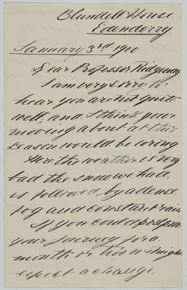 Blundell House
Edenderry
January 3rd 1900
Dear Professor Ridgeway
I am very sorry to
hear you are not quite
well, and I think your
moving about at this
season would be wrong
Here the weather is very
bad the snow we had
is followed by a dense
fog and constant rain
If you could postpone
your journey for a
month or two we might
expect a change.